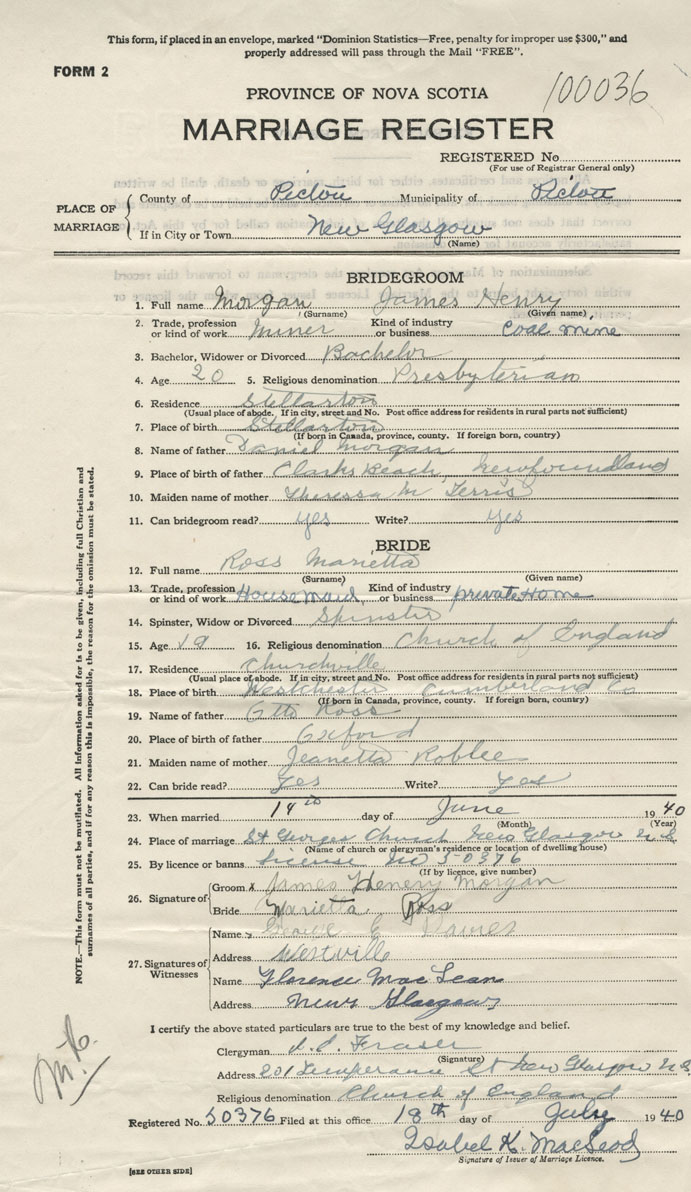 This form, if placed in an envelope, marked “Dominion Statistics—Free, penalty for improper use $300,” and
properly addressed will pass through the Mail “FREE”.
FORM 2
100036
PROVINCE OF NOVA SCOTIA
MARRIAGE REGISTER
REGISTERED No.
(For use of Registrar General only)
PLACE OF MARRIAGE
County of Pictou Municipality of Pictou
If in City or Town New Glasgow
(Name)
BRIDEGROOM
1. Full name Morgan James Henry
(Surname) (Given name)
2. Trade, profession or kind of work Miner Kind of industry or business Coal Mine
3. Bachelor, Widower or Divorced Bachelor
4. Age 20 5. Religious denomination Presbyterian
6. Residence Stellarton
(Usual place of abode. If in city, street and No. Post office address for residents in rural parts not sufficient)
7. Place of birth Stellarton
(If born in Canada, province, county. If foreign born, country)
8. Name of father Daniel Morgan
9. Place of birth of father Clarks Beach, Newfoundland
10. Maiden name of mother Theressa M Ferris
11. Can bridegroom read? yes Write? yes
BRIDE
12. Full name Ross Marietta
(Surname) (Given name)
13. Trade, profession or kind of work House Maid Kind of industry or business private Home
14. Spinster, Widow or Divorced Spinster
15. Age 19 16. Religious denomination Church of England
17. Residence Churchville
(Usual place of abode. If in city, street and No. Post office address for residents in rural parts not sufficient)
18. Place of birth Westchester Cumberland Co
(If born in Canada, province, county. If foreign born, country)
19. Name of father Otto Ross
20. Place of birth of father Oxford
21. Maiden name of mother Jeanetta Roblee
22. Can bride read? Yes Write? Yes
23. When married 14th day of June 1940
(Month) (Year)
24. Place of marriage St Georges Church New Glasgow N.S.
(Name of church or clergyman's residence or location of dwelling house)
25. By licence or banns License No 50376
(If by licence, give number)
26. Signature of
Groom x James Henery Morgan
Bride Marietta Ross
27. Signatures of Witnesses
Name George E Davies
Address Westville
Name Florence MacLean
Address New Glasgow
I certify the above stated particulars are true to the best of my knowledge and belief.
Clergyman Fraser
(Signature)
Address 201 Temperance St New Glasgow N.S.
Religious denomination Church of England
Registered No. 50376 Filed at this office 18th day of July 1940
Isabel K. MacLeod
Signature of Issuer of Marriage Licence.
[SEE OTHER SIDE]
NOTE.—This form must not be mutilated. All information asked for is to be given, including full Christian and
surnames of all parties, and if for any reason this is impossible, the reason for the omission must be stated.